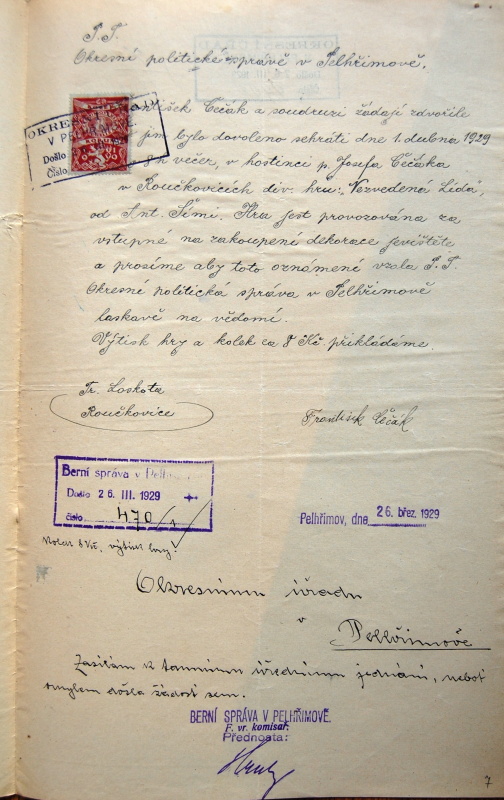 P. T.
Okresní politické správě v Pelhřimově.
OKRES
V PELHŘIMOVĚ
Došlo
Číslo
František Čěčák a soudruzi žádají zdvořile
by jim bylo dovoleno sehráti dne 1. dubna 1929
v 8 h večer, v hostinci p. Josefa Čěčáka
v Roučkovicích div. hru: „Nezvedená Lída",
od Ant. Hru jest provozována za
vstupné na zakoupení dekorace jevištěte
a prosíme aby toto oznámení vzala P. T.
Okresní politická správa v Pelhřimově
laskavě na vědomí.
Výtisk hry a kolek za 8 Kč. přikládáme.
Fr. Loskota
Roučkovice
František Čěčák
Berní správa v Pelhřimově
Došlo 26. III. 1929
číslo 470/1
Pelhřimov, dne 26. břez. 1929
Kolek 8 Kč, výtisk hry.
Okresnímu úřadu
v
Pelhřimově
Zasílám k tamnímu úřednímu jednání, neboť
omylem došla žádost sem.
BERNÍ SPRÁVA V PELHŘIMOVĚ.
F. vr. komisař.
Přednosta:
7